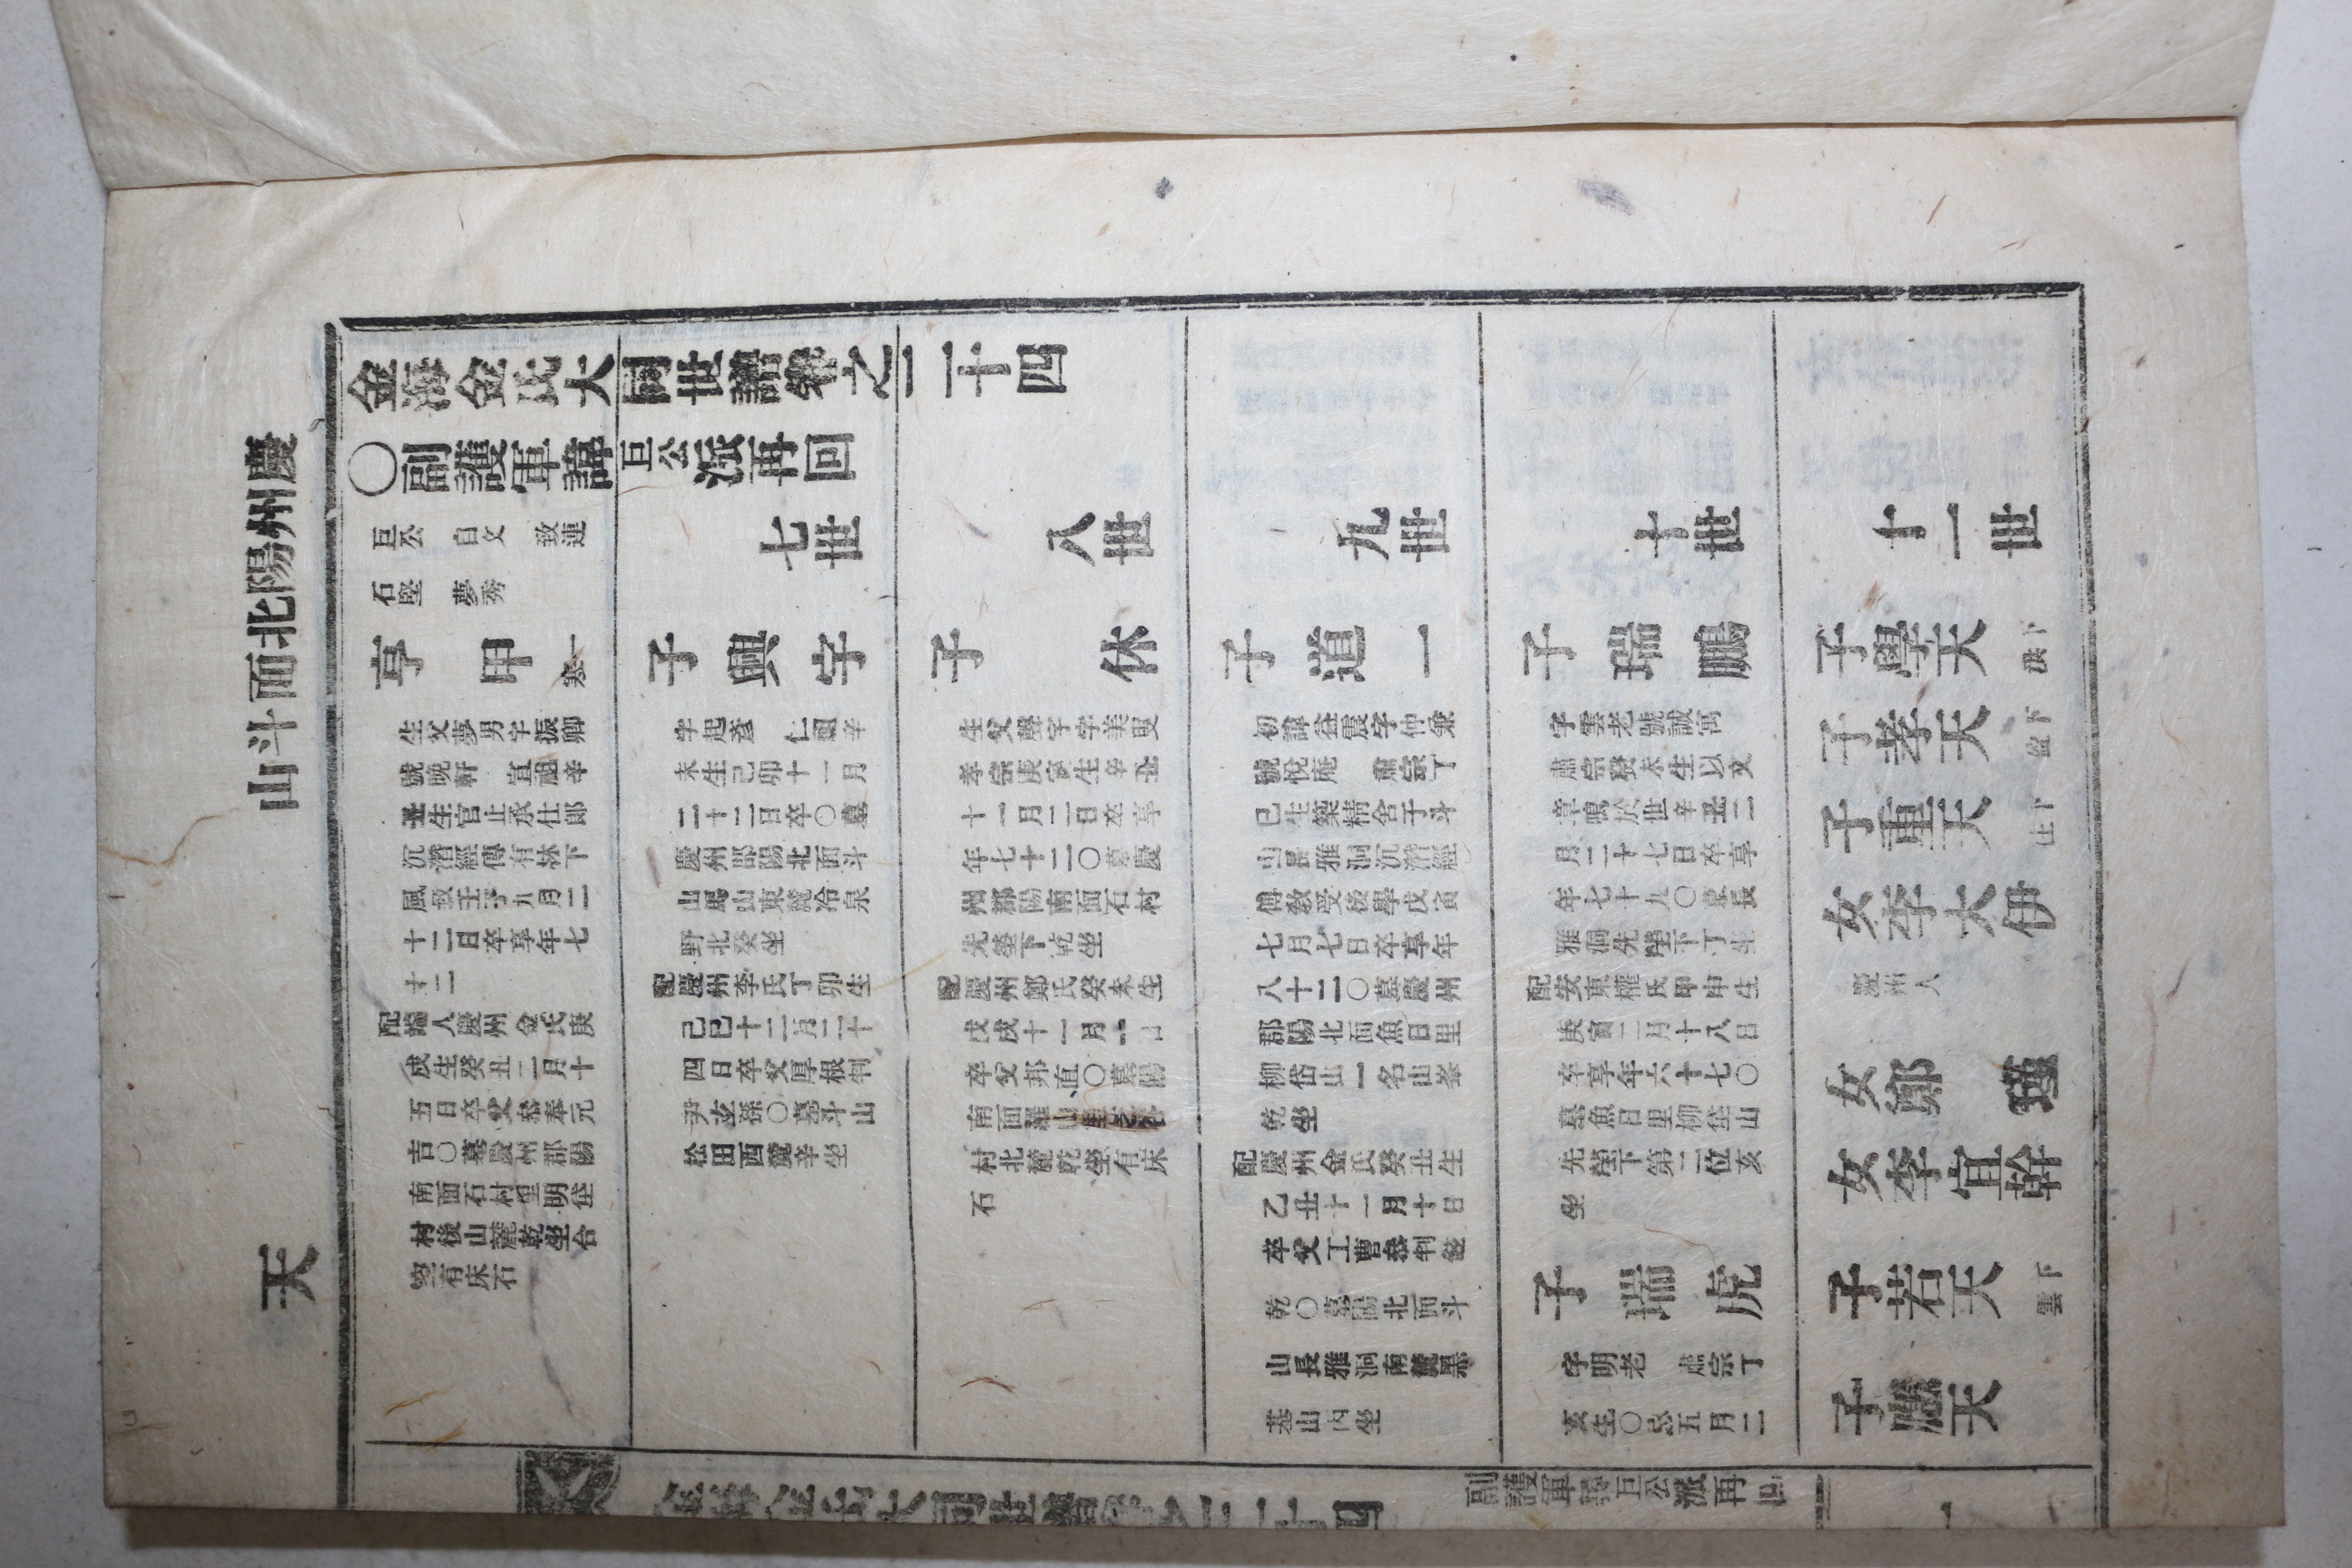 慶州陽北面斗山
天
金海金氏大同世譜卷之二十四
〇副護軍諱巨公派再回
巨公 自文 致連
石堅 夢秀
亨甲 一寒
生父夢男字振卿
號晚軒 宣祖辛
丑生官止承仕郎
沉潛經傳有林下
風致壬子九月二
十二日卒享年七
十二
配端人慶州金氏庚
戌生癸丑二月十
五日卒父參奉元
吉〇墓慶州郡陽
南面石村里明垈
村後山麓乾坐合
窆有床石
七世
子興字
字起彦 仁祖辛
未生己卯十一月
二十二日卒〇墓
慶州郡陽北面斗
山馬山東麓冷泉
野北癸坐
配慶州李氏丁卯生
己巳十二月二十
四日卒父厚根判
尹孫〇墓斗山
松田西麓辛坐
八世
子休
生父聲字字美叟
孝宗庚寅生辛丑
十一月二日卒享
年七十二〇墓慶
州郡陽南面石村
先塋下乾坐
配慶州鄭氏癸未生
戊戌十一月十日
卒父邦直〇墓陽
南面羅山里
村北麓乾坐有床
石
九世
子道一
初諱益震字仲兼
號悅庵 肅宗丁
巳生築精舍于斗
山長雅洞沉潛經
傳敎受後學戊寅
七月七日卒享年
八十二〇墓慶州
郡陽北面魚日里
柳岱山一名山峯
乾坐
配慶州金氏癸丑生
乙丑十一月十日
卒父工曹參判
乾〇墓陽北面斗
山長雅洞南麓黑
墓山丙坐
十世
子瑞鵬
字雲老號誠寓
肅宗癸未生以文
章鳴於世辛丑二
月二十七日卒享
年七十九〇墓長
雅洞先塋下丁坐
配安東權氏甲申生
庚寅二月十八日
卒享年六十七〇
墓魚日里柳垈山
先塋下第二位亥
坐
子瑞虎
字明老 肅宗丁
亥生〇忌五月二
十一世
子學天 下洪
子孝天 下盈
子重天 下
女李大伊
慶州人
女鄭瑾
女李宜幹
子若天 下雲
子應天
金海金氏大同世譜卷之二十四 副護軍諱巨公派再世 一